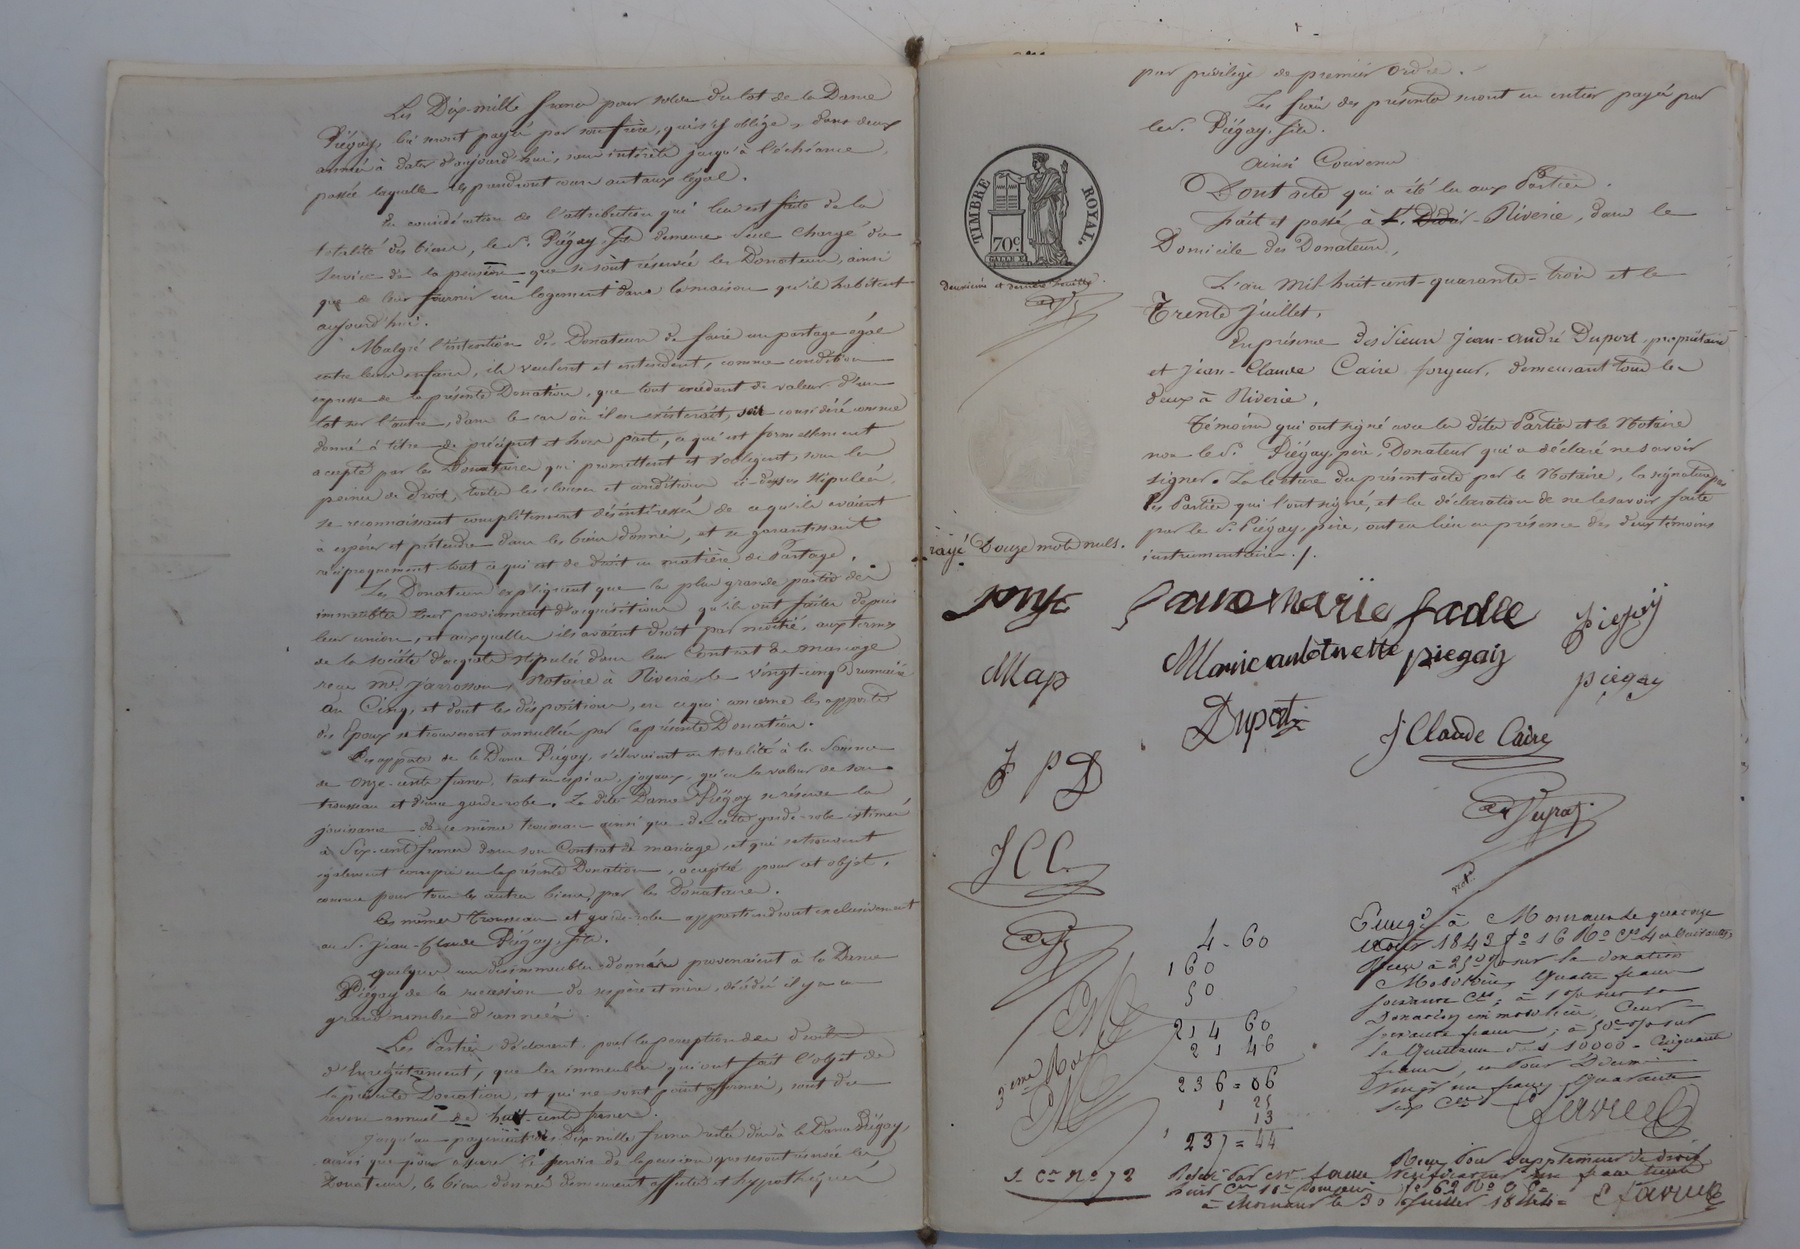 Les Dix-mille francs pour solde du lot de la Dame
Piégay, lui seront payés par son frère, qui s'y oblige, dans deux
années à dater d'aujourd'hui, sans intérêts jusqu'à l'échéance,
passée laquelle ils prendront cours au taux légal.
En considération de l'attribution qui leur est faite de la
totalité des biens, le Sr. Piégay, fils demeure seul chargé du
service de la pension que se sont réservée les Donateurs, ainsi
que de leur fournir un logement dans la maison qu'ils habitent
aujourd'hui.
Malgré l'intention des Donateurs de faire un partage égal
entre leurs enfans, ils veulent et entendent, comme condition
expresse de la présente Donation, que tout excédant de valeur d'un
lot sur l'autre, dans le cas où il en existerait, soit considéré comme
donné à titre de préciput et hors part, ce qui est formellement
accepté par les Donataires qui promettent et s'obligent, sous les
peines de droit, toutes les clauses et conditions ci-dessus stipulées,
se reconnaissant complètement désintéressés de ce qu'ils avaient
à espérer et prétendre dans les biens donnés, et se garantissant
réciproquement tout ce qui est de droit en matière de Partage.
Les Donateurs expliquent que la plus grande partie des
immeubles proviennent d'acquisitions qu'ils ont faites depuis
leur union, et auxquelles ils avaient droit par moitié, aux termes
de la société d'acquêts stipulée dans leur Contrat de mariage
reçu Me. Jarrosson, Notaire à Riverie, le vingt-cinq Brumaire
an Cinq, et dont les dispositions, en ce qui concerne les apports
des Epoux se trouveront annullées par la présente Donation.
Les apports de la Dame Piégay, s'élevaient en totalité à la Somme
de onze-cents francs, tant en espèces, joyaux, qu'en la valeur de son
trousseau et d'une garde-robe. La dite Dame Piégay se réserve la
jouissance de ce même trousseau ainsi que de cette garde-robe estimés
à Six-cents francs dans son Contrat de mariage, et qui se trouvent
également compris en la présente Donation, acceptée pour cet objet,
comme pour tous les autres biens, par les Donataires.
Ces mêmes Trousseau et garde-robe appartiendront exclusivement
au Sr. Jean-Claude Piégay, fils.
Quelques uns des immeubles donnés provenaient à la Dame
Piégay de la succession de ses père et mère, décédés il y a un
grand nombre d'années.
Les Parties déclarent, pour la perception des droits
d'Enregistrement, que les immeubles qui ont fait l'objet de
la présente Donation, et qui ne sont point affermés, sont du
revenu annuel de huit-cents francs.
Jusqu'au payement des Dix-mille francs restés dus à la Dame Piégay,
ainsi que pour assurer le service de la pension que se sont réservée les
Donateurs, les biens donnés demeurent affectés et hypothéqués
par privilège de premier Ordre.
Les frais des présentes seront en entier payés par
le Sr. Piégay, fils.
Ainsi Convenu
Dont acte qui a été lu aux Parties.
Fait et passé à St. Didier-Riverie, dans le
Domicile des Donateurs,
L'an Mil-huit-cent-quarante-trois et le
Trente Juillet,
En présence des Sieurs Jean-André Duport, propriétaire
et Jean-Claude Caire forgeur, demeurant tous les
deux à Riverie,
Témoins qui ont signé avec les dites Parties et le Notaire
non le Sr. Piégay, père, Donateur qui a déclaré ne savoir
signer. La lecture du présent acte par le Notaire, la signature par
les Parties qui l'ont signé, et la déclaration de ne le savoir faite
par le Sr. Piégay, père, ont eu lieu en présence des deux témoins
instrumentaires ./.
TIMBRE ROYAL.
70c.
deuxième et dernière feuille.
rayé Douze mots nuls.
piegay
Map
Marie antoinette piegay
piegay
Duport
J Claude Caire
J P D
J C C.
4 - 60
160
50
214 60
21 46
236 = 06
1 25
13
237 = 44
3eme Rol
Not.
Enregé à Mornant le quatorze
août 1843 fo 16 Ro Cse 4 et suivantes
Reçu à 25c % sur la donation
Mobilière, Quatre francs
soixante Ces; à 1 % sur la
Donation immobilière, Cent
soixante francs; à 50c % sur
la Quittance de 10000 = Cinquante
francs, et pour Décime
Vingt un francs Quarante
six Ces
Favre
S. Ce No 72
Reçu Pour Supplément de droit
à Mornant le 30 Juillet 1844 =